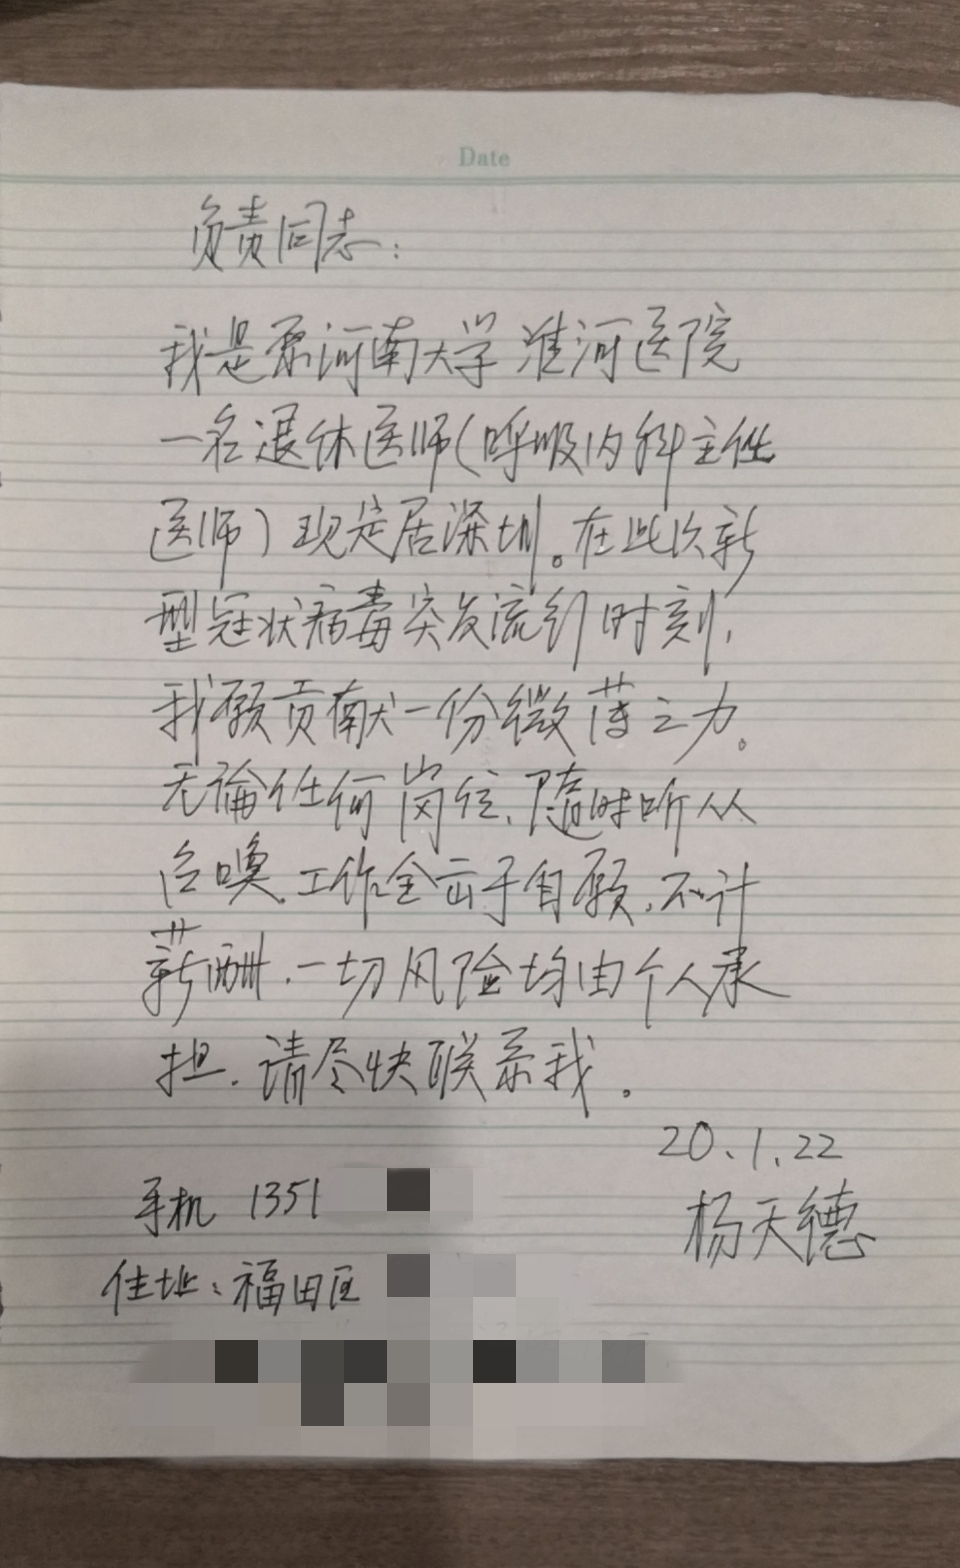 Date
负责同志:
我是原河南大学淮河医院
一名退休医师(呼吸内科主任
医师)现定居深圳。在此次新
型冠状病毒突发流行时刻,
我愿贡献一份微薄之力。
无论任何岗位,随时听从
召唤,工作全出于自愿,不计
薪酬.一切风险均由个人承
担.请尽快联系我。
20.1.22
手机 1351
杨天德
住址:福田区